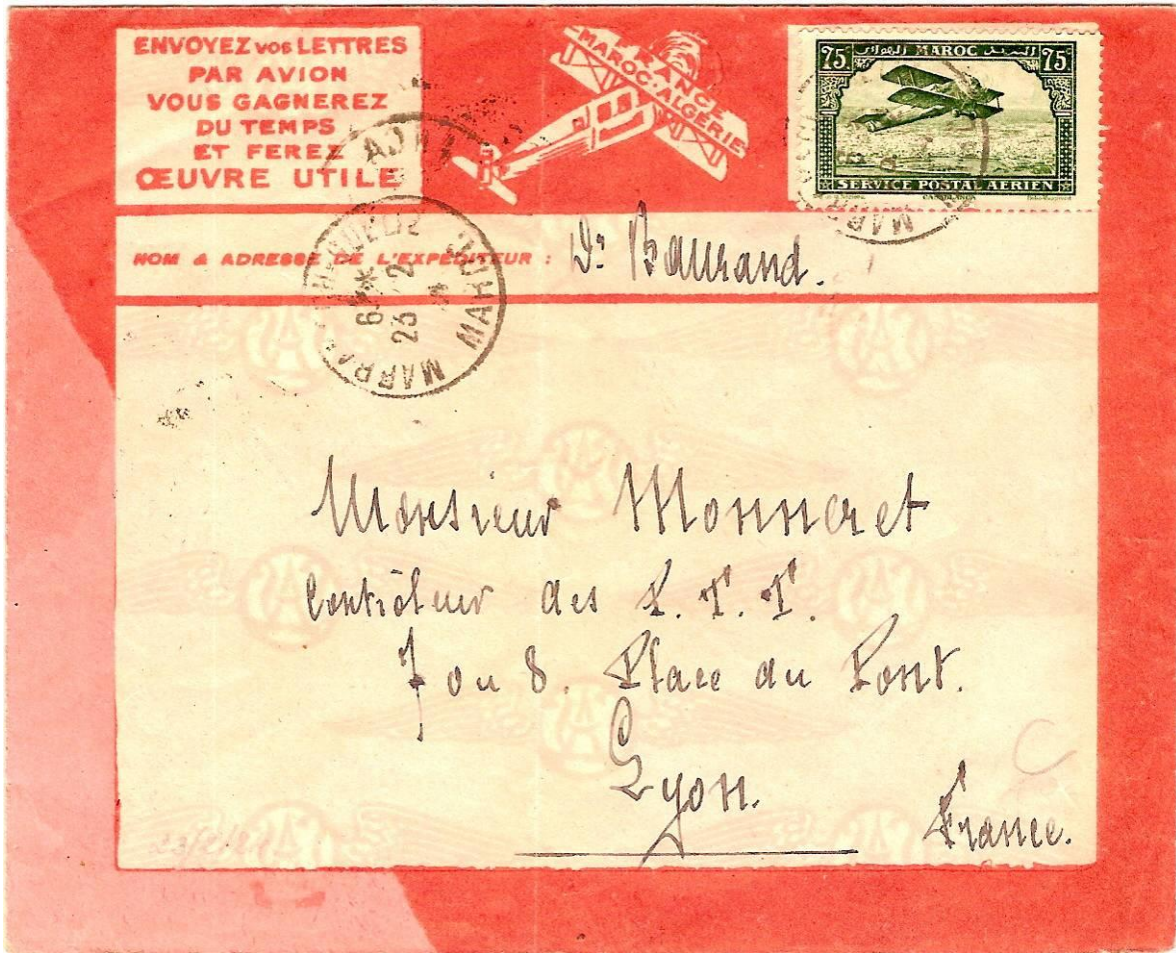 ENVOYEZ VOS LETTRES
PAR AVION
VOUS GAGNEREZ
DU TEMPS
ET FEREZ
ŒUVRE UTILE
FRANCE
MAROC-ALGERIE
75 MAROC 75
SERVICE POSTAL AERIEN
CASABLANCA
NOM & ADRESSE DE L'EXPÉDITEUR : Dr Baurand.
6 **
23 - 2
Monsieur Monneret
Contrôleur des P.T.T.
7 ou 8. Place du Pont.
Lyon.
France.